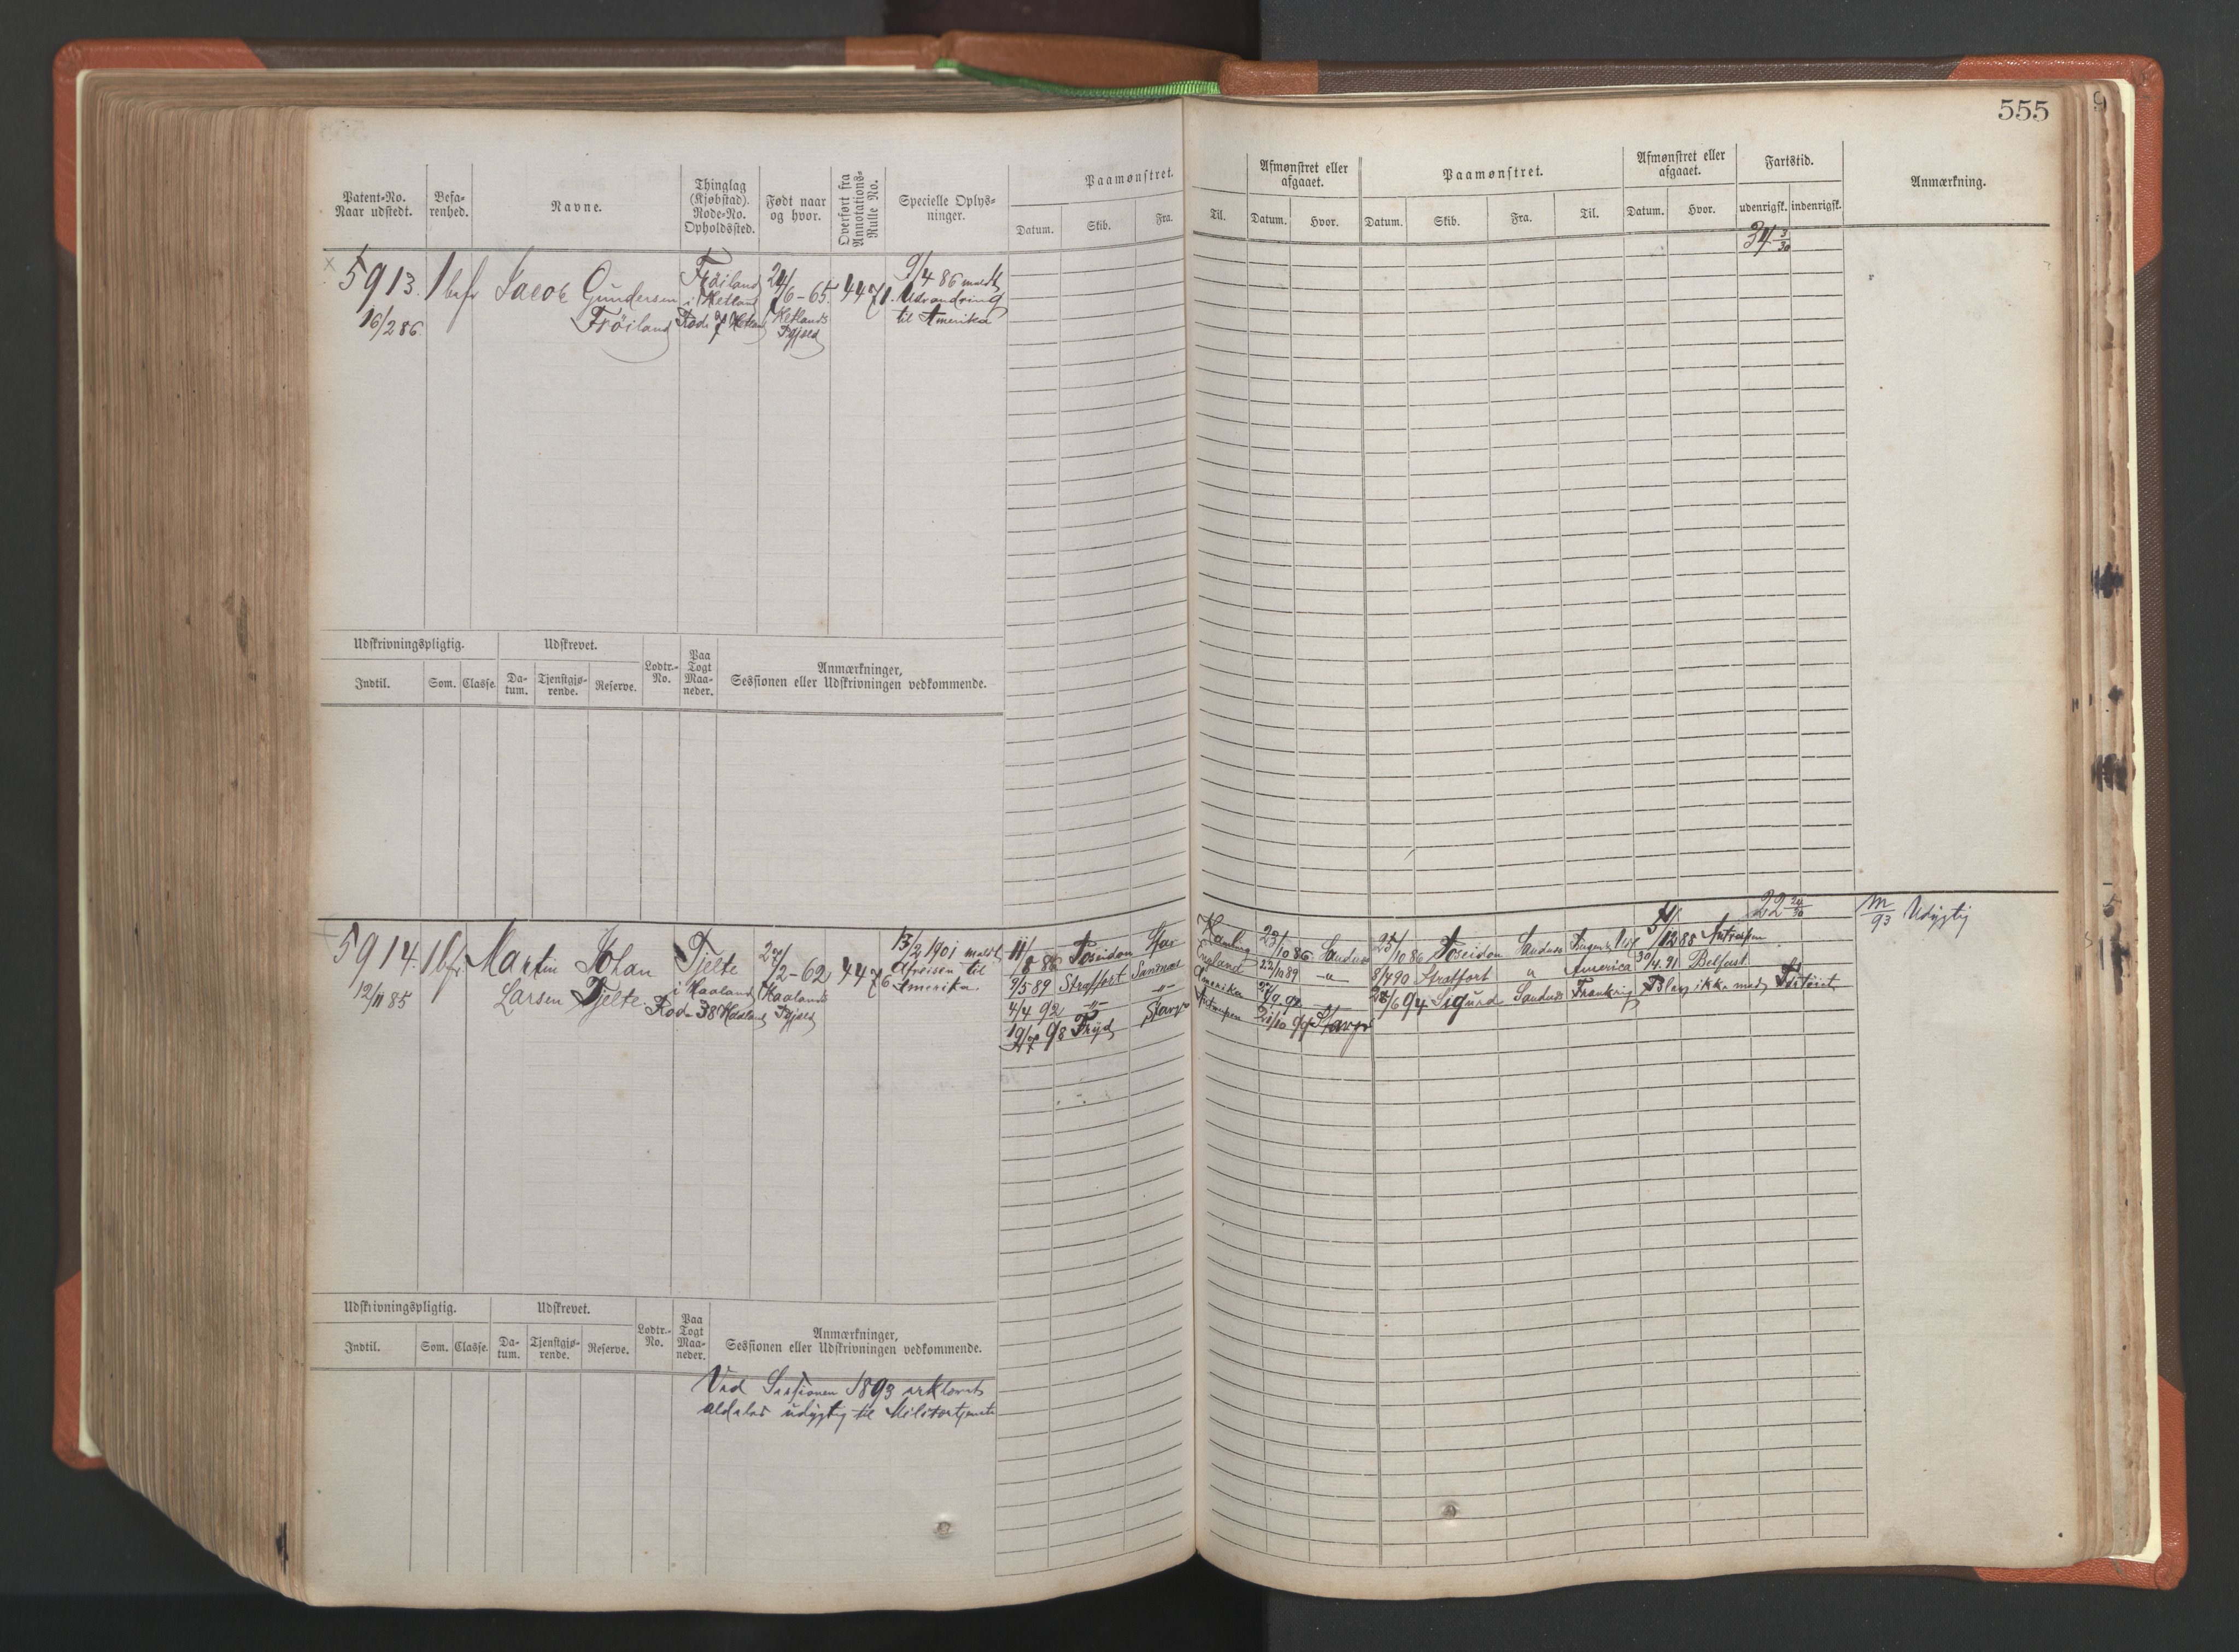 555
Patent-No.
Naar udstedt.
Befa-
renhed.
Navne.
Thinglag
(Kjøbstad).
Rode-No.
Opholdssted.
Født naar
og hvor.
Overført fra
Annotations-
Rulle No.
Specielle Oplys-
ninger.
Paamønstret.
Datum.
Skib.
Fra.
Til.
Afmønstret eller
afgaaet.
Datum.
Hvor.
Paamønstret.
Datum.
Skib.
Fra.
Til.
Afmønstret eller
afgaaet.
Datum.
Hvor.
Fartstid.
udenrigsk.
indenrigsk.
Anmærkning.
34 3/30
5913.
16/2 86.
1 befr
Jacob Gundersen
Fröiland
Fröiland
i Hetland
Rode 7 Hetland
24/6-65.
Hetlands
Pgjæld
4471.
9/4 86 meldt
Udvandring
til Amerika
Udskrivningspligtig.
Indtil.
Som.
Classe.
Udskrevet.
Da-
tum.
Tjenstgjø-
rende.
Reserve.
Lodtr.-
No.
Paa
Togt
Maa-
neder.
Anmærkninger,
Sessionen eller Udskrivningen vedkommende.
5914.
12/11 85
1 bfr.
Martin Johan
Larsen Tjelte.
Tjelte
i Haaland
Rode 38 Haaland
/2-62
Haalands
Pgjæld
4476
13/2 1901 meldt
Afreisen til
Amerika.
11/8 86 Poseidon Stav
Hamburg 23/10 86 Sandnæs
25/10 86 Poseidon Sandnæs
/12 88 Antwerpen
22 24/30
m/93 Udygtig
9/5 89 Stratfort Sandnæs
England 22/10 89 -"-
8/4 90 Stratfort " America 30/4. 91 Belfast
4/4 92 -"- -"-
Amerika
/6 94 Sigurd Sandnæs Frankrig Blev ikke med Fartöiet
19/7 98 Fryd Stavgr
Antwerpen 21/10 99 Stavgr
Udskrivningspligtig.
Indtil.
Som.
Classe.
Udskrevet.
Da-
tum.
Tjenstgjø-
rende.
Reserve.
Lodtr.-
No.
Paa
Togt
Maa-
neder.
Anmærkninger,
Sessionen eller Udskrivningen vedkommende.
Ved Sessionen 1893 erklæret
aldeles udygtig til Militærtjeneste